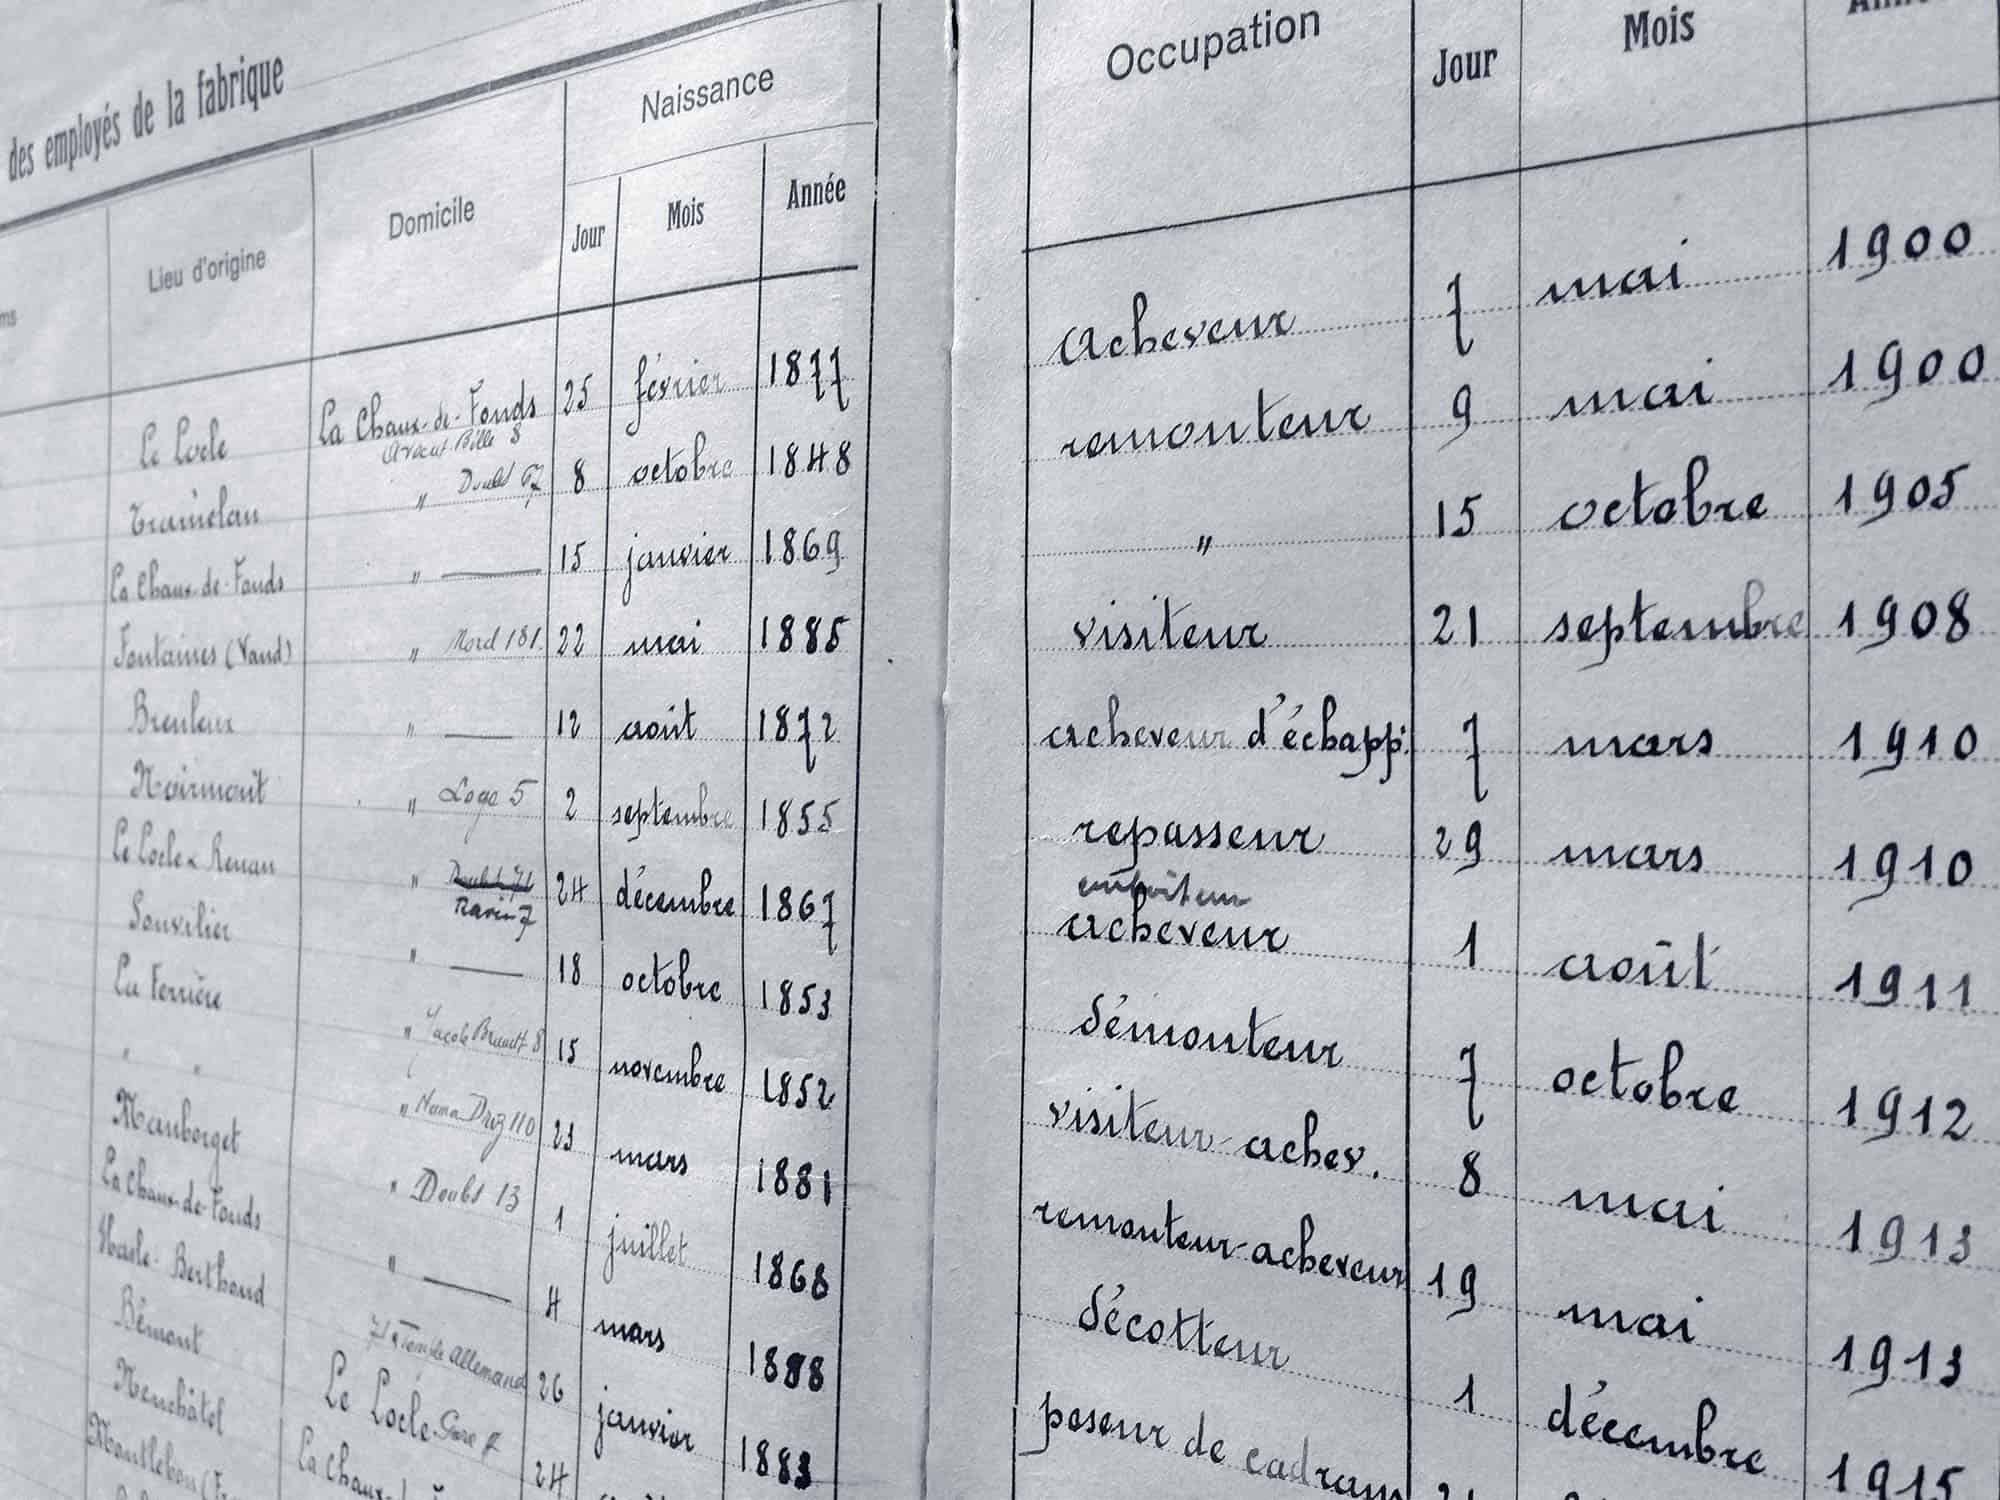 des employés de la fabrique
Lieu d'origine Domicile Naissance
Jour Mois Année
Le Locle La Chaux-de-Fonds 25 février 1877
Trainelan " Doubs 67 8 octobre 1848
La Chaux-de-Fonds " 15 janvier 1869
Fontaines (Vaud) " Nord 181. 22 mai 1885
Breuleux " 12 août 1872
Noirmont " Loge 5 2 septembre 1855
Le Locle & Renan " Doubs 71 24 décembre 1867
Ravin 7
Sonvilier " 18 octobre 1853
La Ferrière " Jacob Brandt 8 15 novembre 1852
" " " Numa Droz 110 23 mars 1881
Mauborget " Doubs 13 1 juillet 1868
La Chaux-de-Fonds " 4 mars 1888
Hasle-Berthoud Temple Allemand 26 janvier 1883
Bémont Le Locle Gare 24
Neuchâtel La Chaux-
Montlebon
Occupation Jour Mois
Acheveur 7 mai 1900
remonteur 9 mai 1900
" 15 octobre 1905
visiteur 21 septembre 1908
acheveur d'échapp. 7 mars 1910
repasseur 29 mars 1910
emboîteur
acheveur 1 août 1911
démonteur 7 octobre 1912
visiteur-achev. 8 mai 1913
remonteur-acheveur 19 mai 1913
décotteur 1 décembre 1915
poseur de cadrans